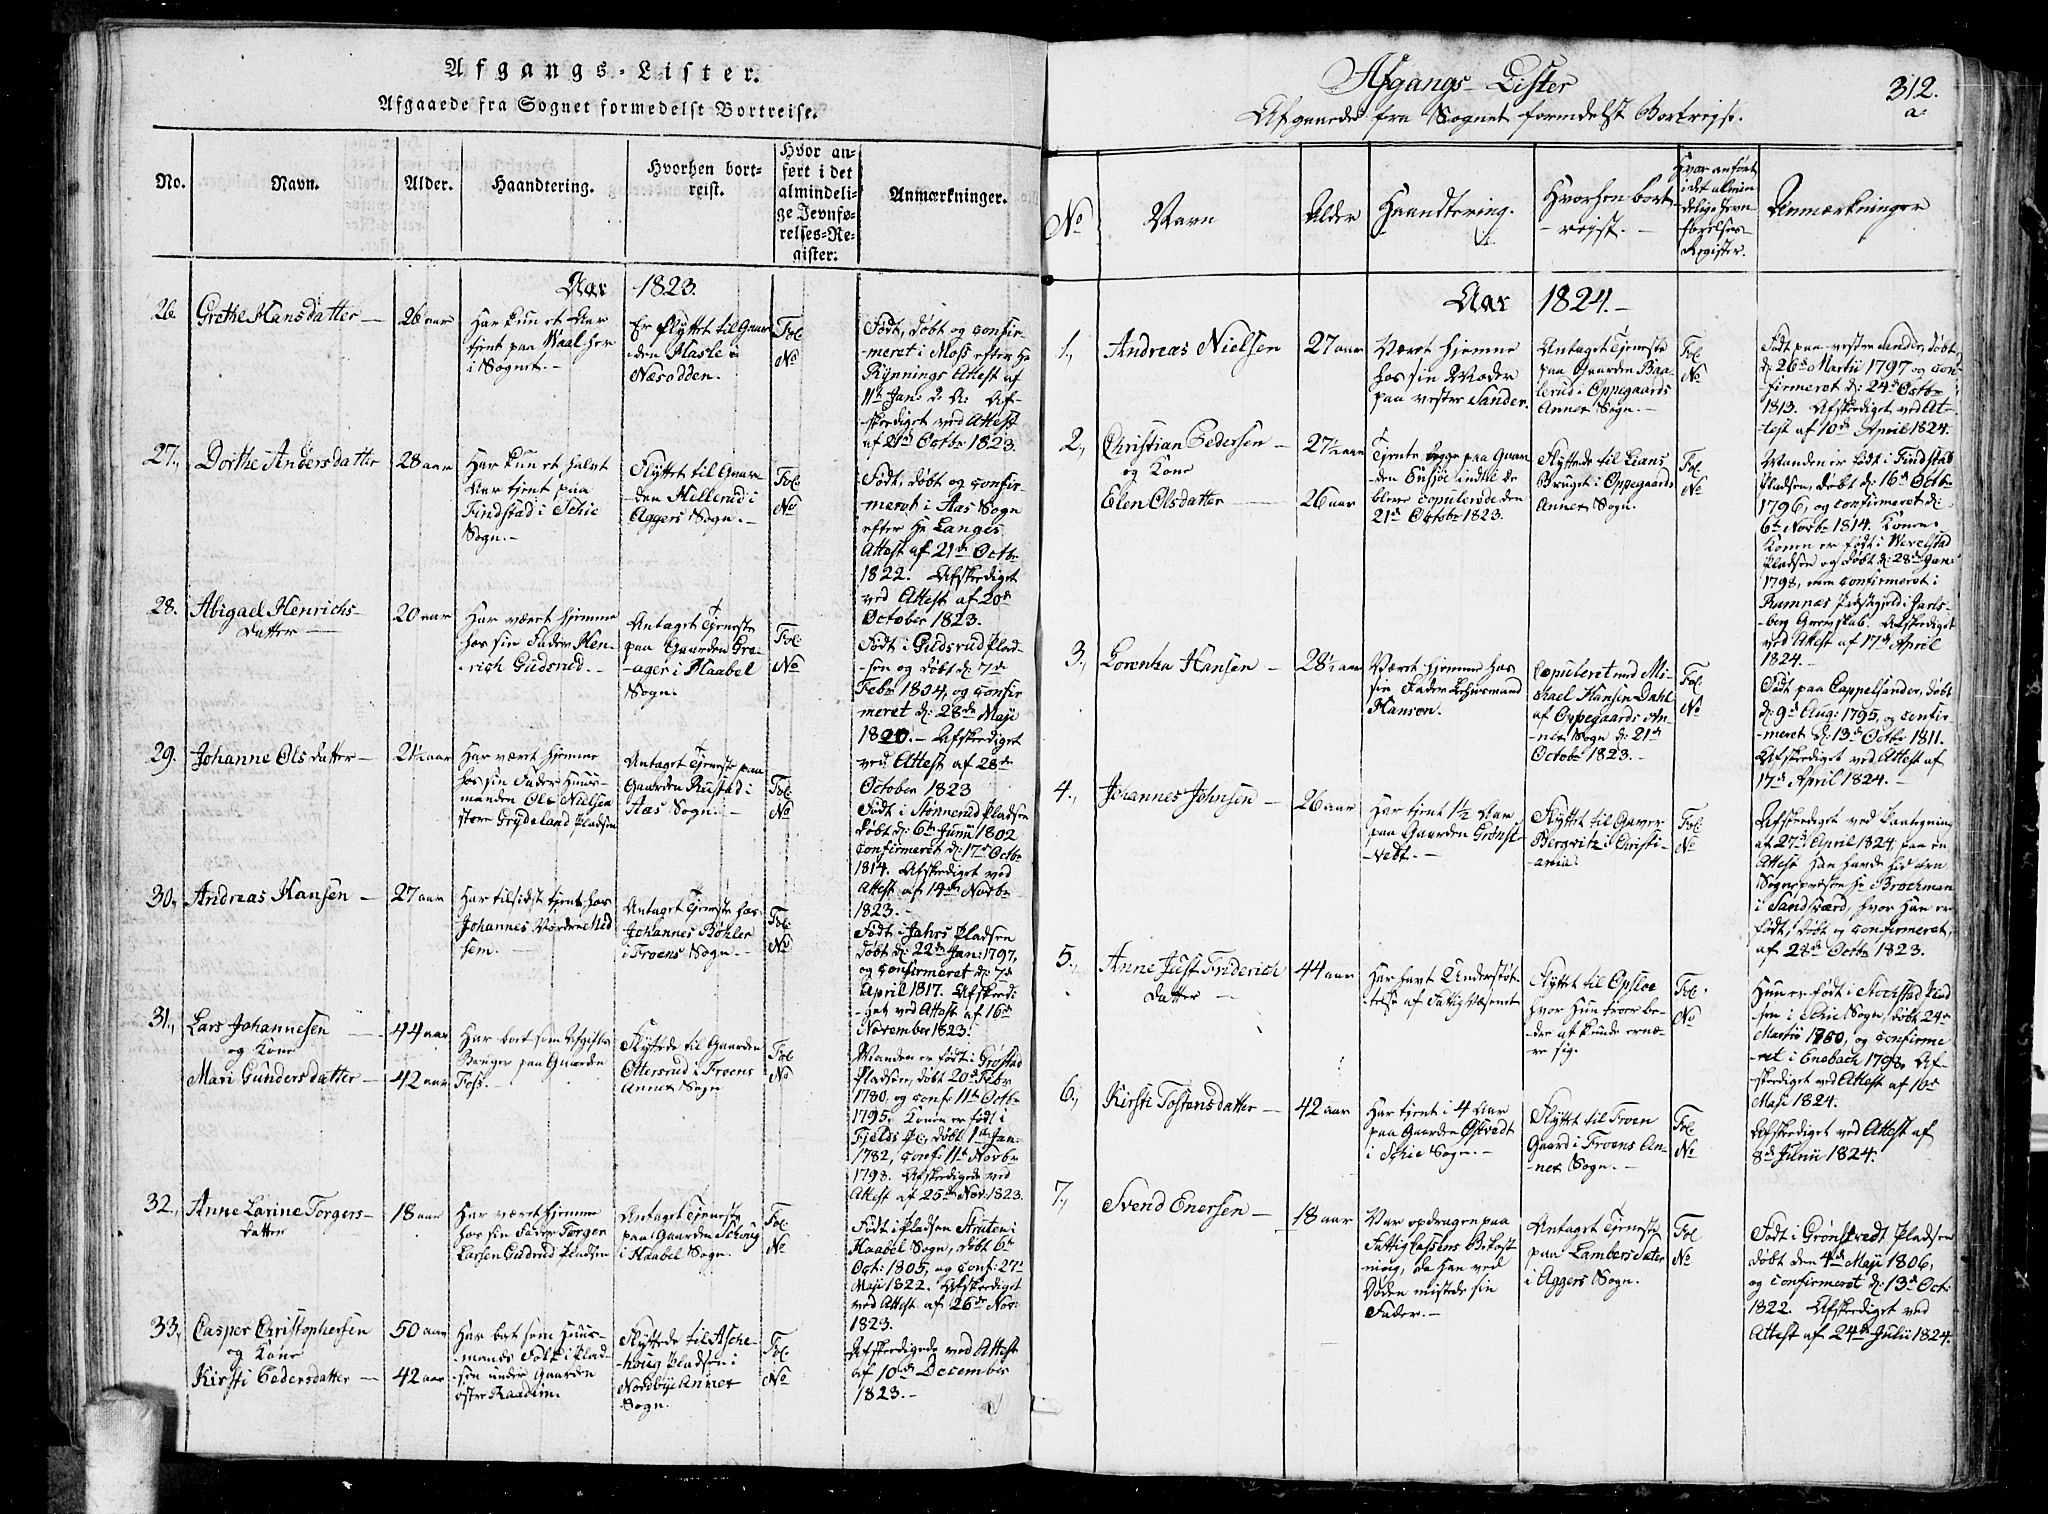 Afgangs-Lister.
Afgaaede fra Sognet formedelst Bortreise.
No.
Navn.
Alder.
Haandtering.
Hvorhen bort-
reist.
Hvor an-
ført i det
almindeli-
ge Jevnfø-
relses-Re-
gister.
Anmærkninger.
Aar 1823.
26.
Grethe Hansdatter —
26 aar
Har kun et Aar
tjent paa Waal her
i Sognet. —
Er flyttet til Gaar
den Hasle i
Næsodden.
Fol.
No
Født, døbt og confir-
meret i Moss efter Hr
Rynnings Attest af
11te Jan: d: A: Af-
skediget ved Attest
af 2den Octbr 1823.
27.,
Dorthe Andersdatter
28 aar
Har kun et halvt
Aar tjent paa
Findstad i Schie
Sogn. —
Flyttet til Gaar
den Hellerud i
Aggers Sogn. —
Fol.
No
Født, døbt og confir-
meret i Aas Sogn
efter Hr Langes
Attest af 21de Octbr
1822. Afskediget
ved Attest af 20de
October 1823.
28.
Abigael Henrichs-
datter —
20 aar
Har været hjemme
hos sin Fader Hen-
rich Gudsrud. —
Antaget Tjeneste
paa Gaarden Gre-
ager i Haabel
Sogn.
Fol.
No
Født i Gudsrud Plad-
sen og døbt d: 7de
Febr 1804, og confir
meret d: 28de Maji
1820. — Afskediget
ved Attest af 28de
October 1823
29.
Johanne Olsdatter —
21½ aar
Har været hjemme
hos sin Fader Huus-
manden Ole Nielsen
store Grydeland Pladsen
Antaget Tjeneste paa
Gaarden Rustad i
Aas Sogn. —
Fol.
No
Født i Stønnerud Pladsen
døbt d: 6te Junii 1802
confirmeret d: 17de Octbr
1814. Afskediget ved
Attest af 14de Novbr
1823. —
30.,
Andreas Hansen —
27 aar
Har tilsidst tjent hos
Johannes Nordre Mid
sem. —
Antaget Tjeneste hos
Johannes Bøhler
i Froens Sogn. —
Fol.
No
Født i Jahrs Pladsen
døbt d: 22de Jan: 1797,
og confirmeret d: 7de
April 1817. Afskedi
get ved Attest af 16de
November 1823.
31.,
Lars Johannesen —
og Kone
Mari Gundersdatter —
44 aar
42 aar
Har boet som Afgifts
Bruger paa Gaarden
Foss. —
Flyttede til Gaarden
Ottersrud i Froens
Annex Sogn
Fol.
No
Manden er født i Grøstad
Pladsen, døbt 20de Febr
1780, og conf: 11te Octbr
1795. Konen er født i
Fjelds Pl:, døbt 1ste Jan:
1782, conf: 11te Novbr
1798. Afskedigede ved
Attest af 25de Nov: 1823.
32.,
Anne Larine Torgers-
datter
18 aar
Har været hjemme
hos sin Fader Torger
Larsen Gudrud Pladsen
Antaget Tjeneste
paa Gaarden Schoug
i Haabel Sogn.
Fol.
No
Født i Pladsen Straten i
Haabel Sogn, døbt 6te
Oct: 1805, og conf: 27de
Maji 1822. Afskediget
ved Attest af 26de Nov:
1823.
33.,
Casper Christophersen
og Kone
Kirsti Pedersdatter —
50 aar
42 aar
Har boet som Huus-
mands Folk i Plad-
sen under Gaarden
øster Raadim.
Flyttede til Asche-
houg Pladsen i
Nordbye Annex
Sogn.
Fol.
No
Afskedigede ved Attest
af 10de December
1823. —
Afgangs-Lister
312.
a.
Afgaaede fra Sognet formedelst Bortrejse.
No
Navn
Alder
Haandtering.
Hvorhen bort
rejst. —
Hvor anført
i det almin
delige Jevn
førelses
Register.
Anmærkninger
Aar 1824. —
1.,
Andreas Nielsen
27 aar
Været hjemme
hos sin Moder
paa vestre Sander.
Antaget Tjeneste
paa Gaarden Baa-
lerud i Oppegaards
Annex Sogn. —
Fol.
No
Født paa vestre Sander, døbt
d: 26de Martii 1797 og con-
firmeret d: 24de Octbr
1813. Afskediget ved At-
test af 10de April 1824.
2.,
Christian Pedersen —
og Kone
Elen Olsdatter —
27½ aar
26 aar
Tjente begge paa Gaar
den Enssøe indtil de
bleve copulerede den
21de Octobr 1823.
Flyttede til Lians
Bruget i Oppegaards
Annex Sogn.
Fol.
No
Manden er født i Findstad
Pladsen, døbt d: 16de Octbr
1796, og confirmeret d:
6te Novbr 1814. Konen
Konen er født i Wevelstad
Pladsen og døbt d: 28de Jan:
1798, men confirmeret i
Ramnæs Præstegjeld i Jarls-
berg Grevskab. Afskediget
ved Attest af 17de April
1824. —
3.,
Lorentza Hansen —
28½ aar
Været hjemme hos
sin Fader Lehnsmand
Hanson.
Copuleret med Mi-
chael Hansen Dahl
af Oppegaards An-
nex Sogn d: 21de
Octobr 1823. —
Fol.
No
Født paa Cappelsander, døbt
d: 9de Aug: 1795, og confir-
meret d: 13de Octbr 1811.
Afskediget ved Attest af
17de April 1824. —
4.,
Johannes Johnsen —
26 aar
Har tjent 1½ Aar
paa Gaarden Grønst-
vedt. —
Flyttet til Gaver
Bergwitz i Christi-
ania.
Fol.
No
Afskediget ved Paategning
af 27de April 1824, paa en
Attest Han havde hid fra
Sognepræsten Hr Brochman
i Sandsværd, hvor Han er
født, døbt og confirmeret,
af 28de Octbr 1823.
5.,
Anne Just Friderich
datter —
44 aar
Har havt Understøt-
telse af Fattig Væsenet
Flyttet til Opsloe
hvor Hun troer be-
dre at kunde ernæ-
re sig.
Fol.
No
Hun er født i Stochstad Plad
sen i Schie Sogn, døbt 24de
Martii 1780, og confirme
ret i Enebach 1798. Af-
skediget ved Attest af 16de
Maji 1824.
6.,
Kirsti Tostensdatter —
42 aar
Har tjent i 4 Aar
paa Gaarden Østvedt
i Schie Sogn. —
Flyttet til Froen
Gaard i Froens An-
nex Sogn. —
Fol.
No
Afskediget ved Attest af
8de Junii 1824.
7.,
Svend Enersen —
18 aar
Var opdragen paa
Fattig Cassens Bekost
ning, da Han ved
Døden mistede sin
Fader. —
Antaget Tjeneste
paa Lamberseter
i Aggers Sogn.
Fol
No
Født i Grønstvedt Pladsen
døbt den 4de Maji 1806,
og confirmeret d: 13de Oct:
1822. Afskediget ved
Attest af 24de Julii 1824.